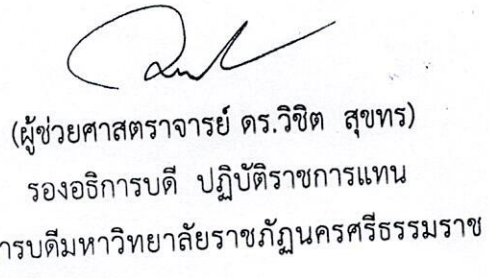 (ผู้ช่วยศาสตราจารย์ ดร.วิชิต สุขทร)
รองอธิการบดี ปฏิบัติราชการแทน
ารบดีมหาวิทยาลัยราชภัฏนครศรีธรรมราช